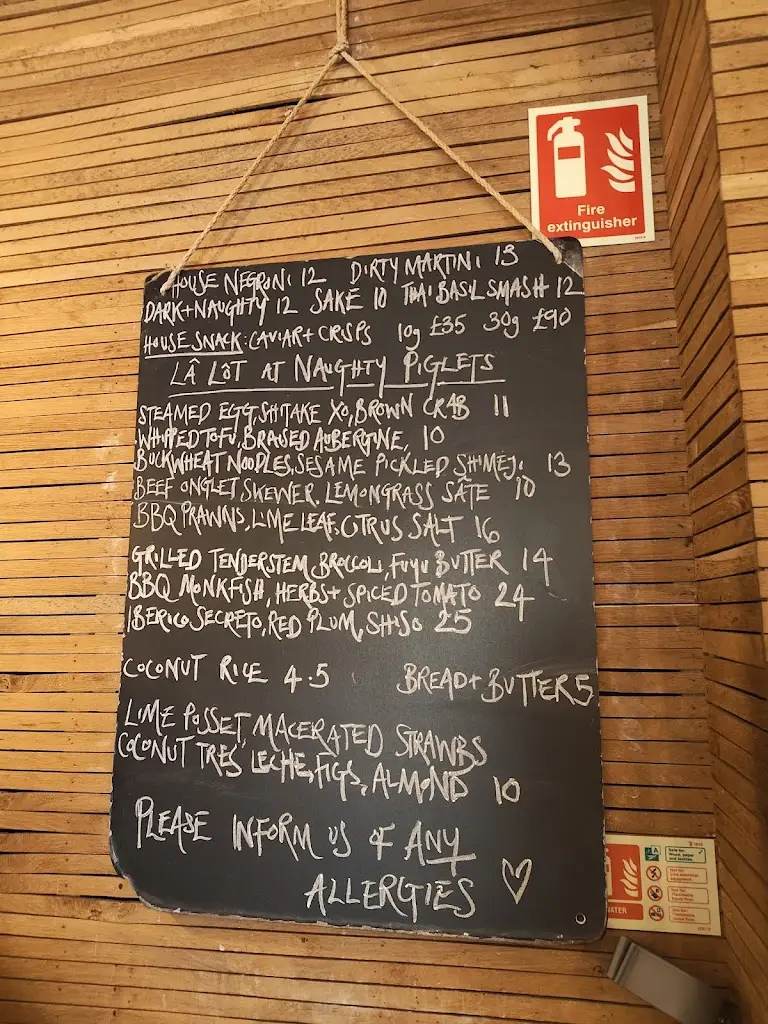 Fire
extinguisher
HOUSE NEGRONI 12 DIRTY MARTINI 13
DARK+NAUGHTY 12 SAKÉ 10 THAI BASIL SMASH 12
HOUSE SNACK: CAVIAR+ CRISPS 10g £35 30g £90
LÁ LÔT AT NAUGHTY PIGLETS
STEAMED EGG, SHITAKE XO, BROWN CRAB 11
WHIPPED TOFU, BRAISED AUBERGINE, 10
BUCKWHEAT NOODLES, SESAME PICKLED SHIMEJI 13
BEEF ONGLET SKEWER, LEMONGRASS SÂTE 10
BBQ PRAWNS, LIME LEAF, CITRUS SALT 16
GRILLED TENDERSTEM BROCCOLI, FUYU BUTTER 14
BBQ MONKFISH, HERBS+ SPICED TOMATO 24
IBERICO SECRETO, RED PLUM, SHISO 25
COCONUT RICE 4.5 BREAD+ BUTTER 5
LIME POSSET, MACERATED STRAWBS
COCONUT TRES LECHE, FIGS, ALMOND 10
PLEASE INFORM US OF ANY
ALLERGIES
WATER